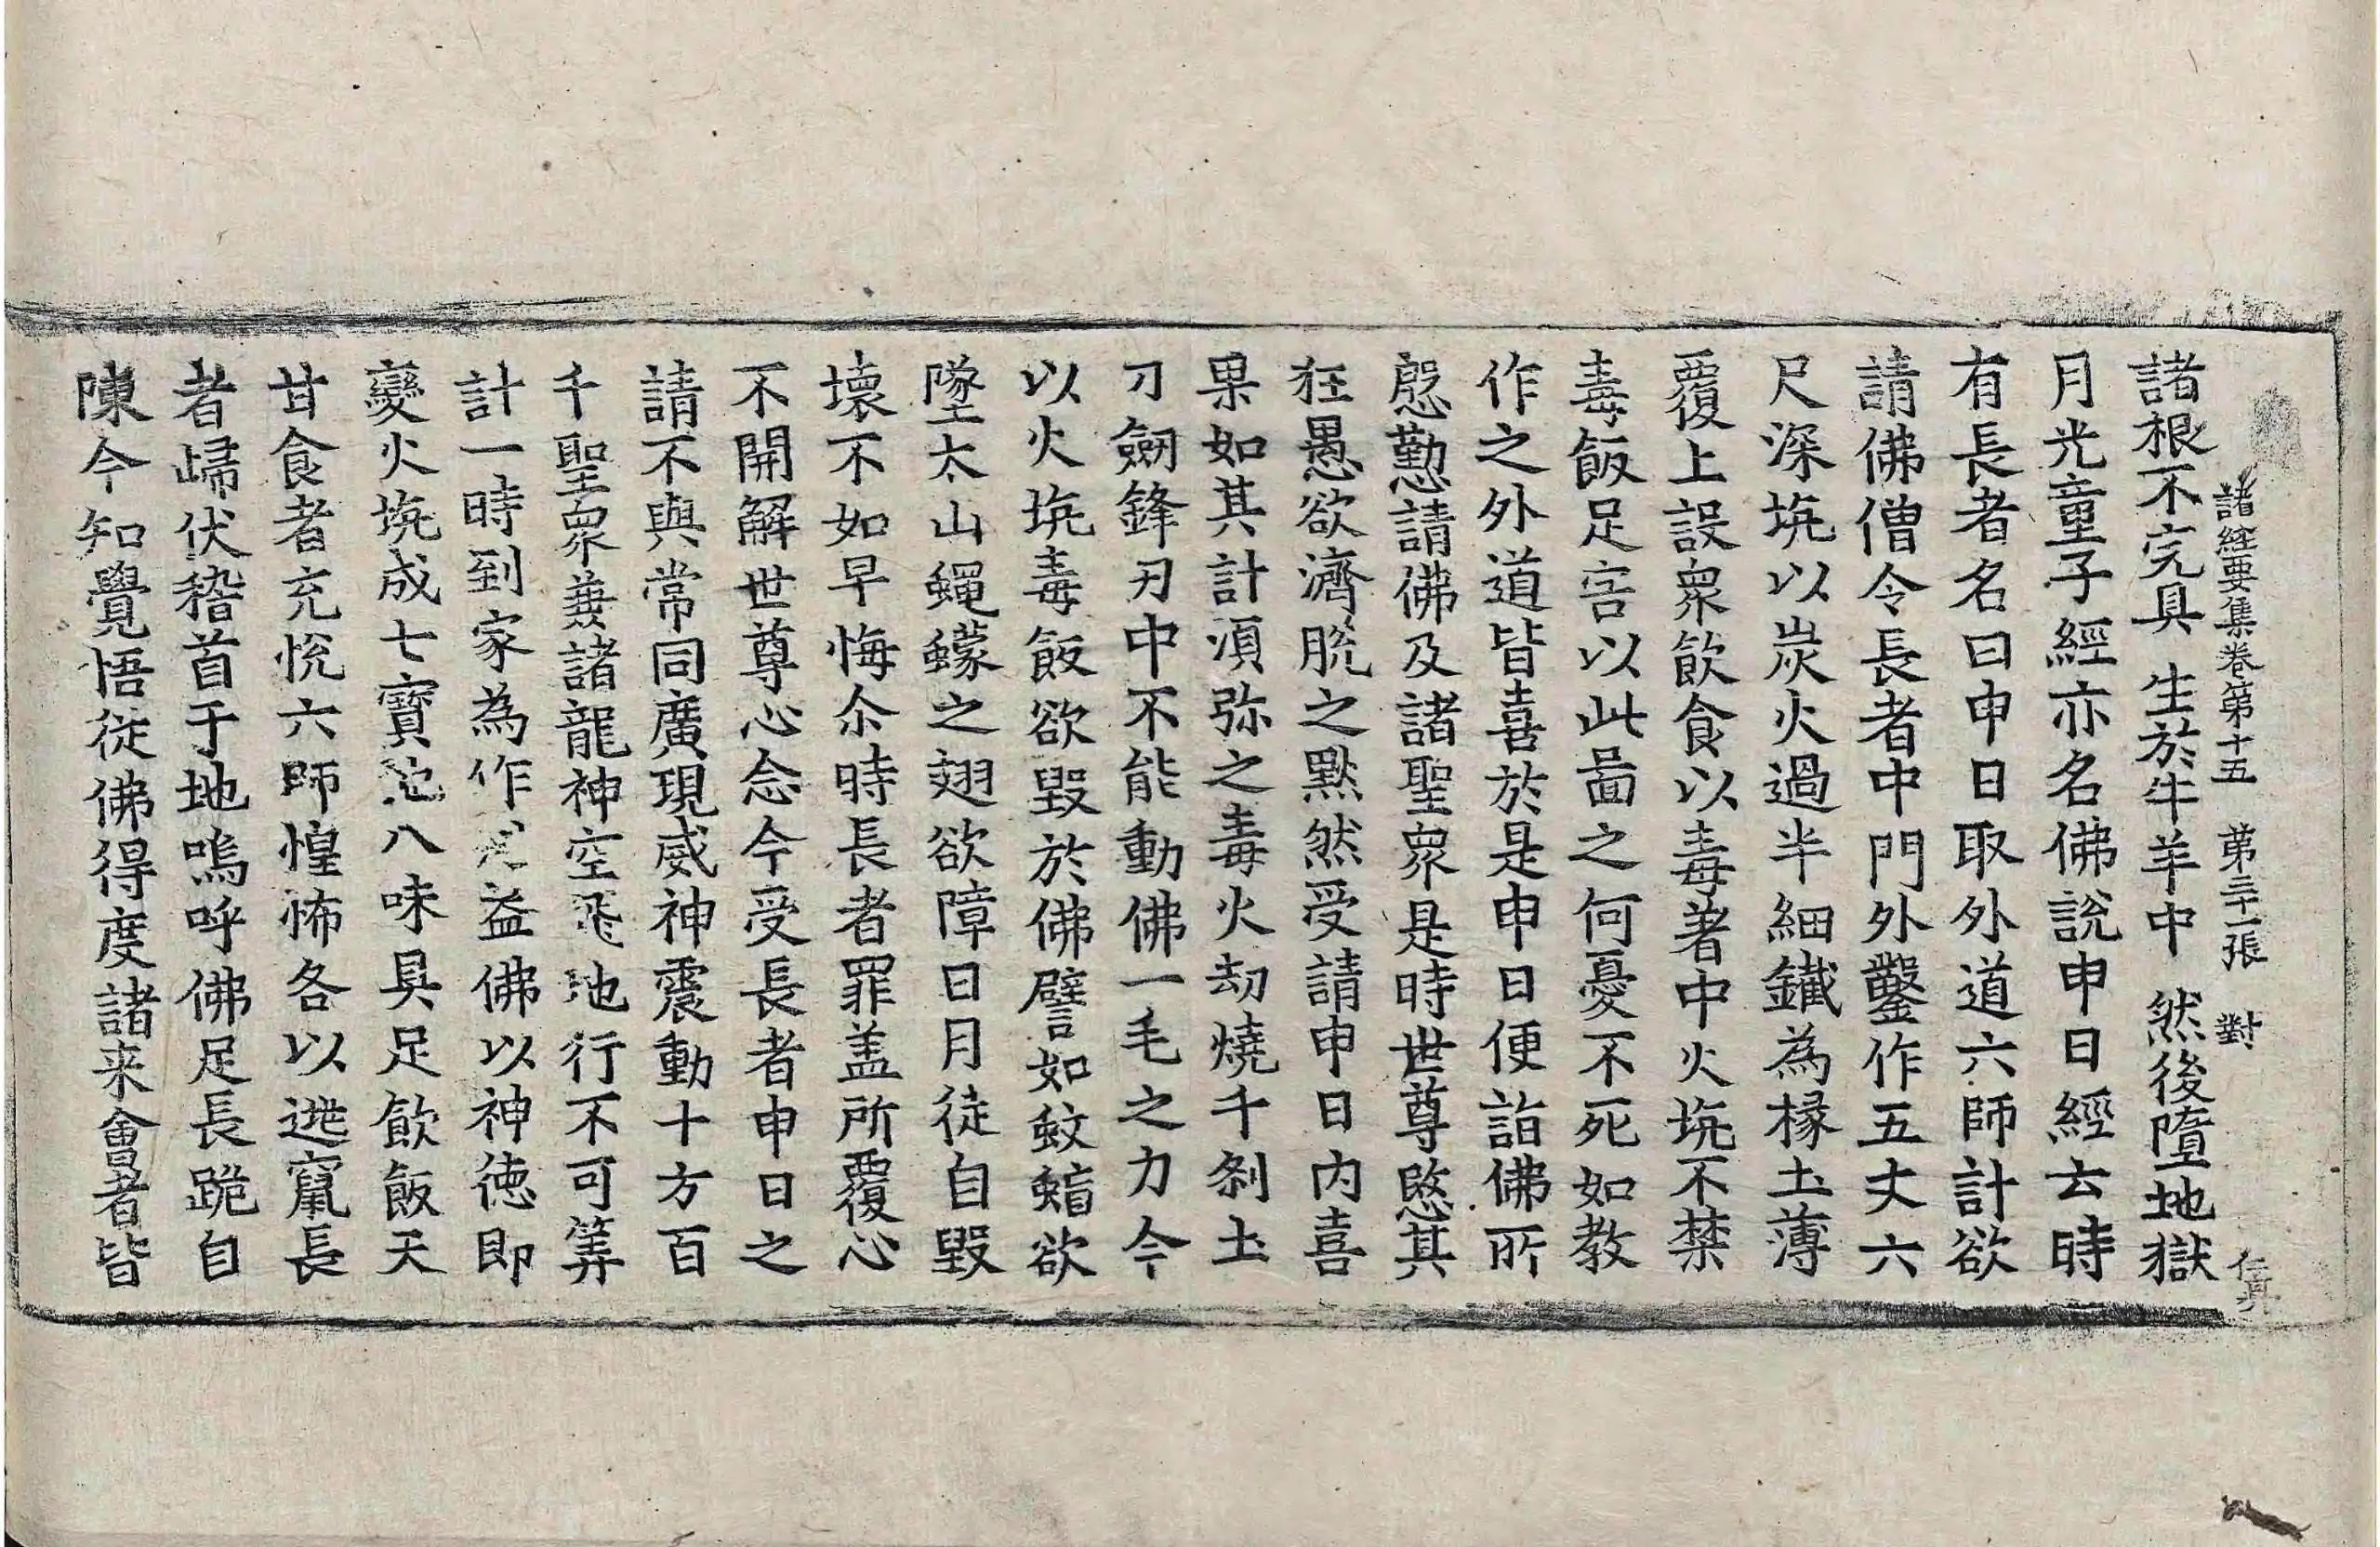 諸經要集卷第十五 第三十一張 對 仁典
諸根不完具 生於牛羊中 然後墮地獄
月光童子經亦名佛說申日經云時
有長者名曰申日取外道六師計欲
請佛僧令長者中門外鑿作五丈六
尺深坑以炭火過半細鐵為椽土薄
覆上設衆飲食以毒著中火坑不禁
毒飯足害以此啚之何憂不死如教
作之外道皆喜於是申日便詣佛所
慇懃請佛及諸聖衆是時世尊愍其
狂愚欲濟脫之黙然受請申日內喜
果如其計須弥之毒火劫燒千刹土
刀劒鋒刃中不能動佛一毛之力今
以火坑毒飯欲毀於佛譬如蚊蝱欲
墜太山蠅蠓之翅欲障日月徒自毀
壞不如早悔尒時長者罪盖所覆心
不開解世尊心念今受長者申日之
請不與常同廣現威神震動十方百
千聖衆蕪諸龍神空飛地行不可筭
計一時到家為作 益佛以神徳即
變火坑成七寶池八味具足飲飯天
甘食者充恱六師惶怖各以逃竄長
者歸伏稽首于地嗚呼佛足長跪自
陳今知覺悟從佛得度諸来會者皆